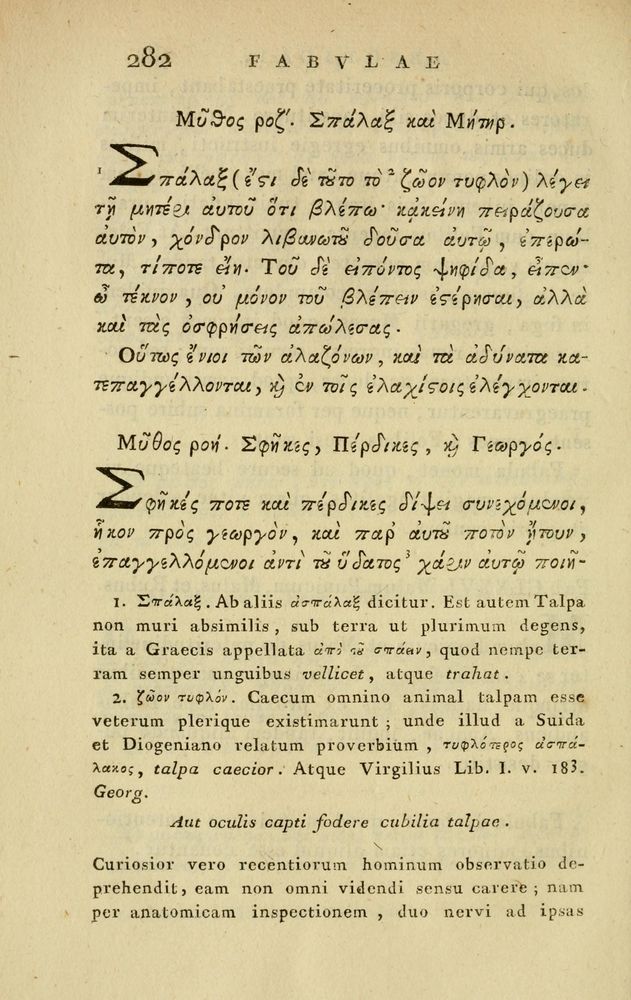 282 FABVLAE
Μῦθος ροζʹ. Σπάλαξ καὶ Μήτηρ.
¹ Σπάλαξ (ἔϛι δὲ τȣ̃το τὸ ² ζῶον τυφλὸν) λέγει
τῇ μητέρι αὐτοῦ ὅτι βλέπω· κἀκείνη πειράζουσα
αὐτὸν, χόνδρον λιβανωτȣ̃ δοῦσα αὐτῷ, ἐπερώ-
τα, τίποτε εἴη. Τοῦ δὲ εἰπόντος ψηφίδα, εἶπεν·
ὦ τέκνον, οὐ μόνον τοῦ βλέπειν ἐϛέρησαι, ἀλλὰ
καὶ τὰς ὀσφρήσεις ἀπώλεσας.
Οὕτως ἔνιοι τῶν ἀλαζόνων, καὶ τὰ ἀδύνατα κα-
τεπαγγέλλονται, ϗ ἐν τοῖς ἐλαχίϛοις ἐλέγχονται.
Μῦθος ροή. Σφῆκες, Πέρδικες, ϗ Γεωργός.
Σφῆκές ποτε καὶ πέρδικες δίψει συνεχόμενοι,
ἧκον πρὸς γεωργὸν, καὶ παρ' αὐτȣ̃ ποτὸν ᾔτουν,
ἐπαγγελλόμενοι ἀντὶ τȣ̃ ὕδατος ³ χάριν αὐτῷ ποιῆ-
1. Σπάλαξ. Ab aliis ἀσπάλαξ dicitur. Est autem Talpa
non muri absimilis, sub terra ut plurimum degens,
ita a Graecis appellata ἀπὸ τȣ̃ σπάειν, quod nempe ter-
ram semper unguibus vellicet, atque trahat.
2. ζῶον τυφλόν. Caecum omnino animal talpam esse
veterum plerique existimarunt; unde illud a Suida
et Diogeniano relatum proverbium, τυφλότερος ἀσπά-
λακος, talpa caecior. Atque Virgilius Lib. I. v. 183.
Georg.
Aut oculis capti fodere cubilia talpae.
Curiosior vero recentiorum hominum observatio de-
prehendit, eam non omni videndi sensu carere; nam
per anatomicam inspectionem, duo nervi ad ipsas